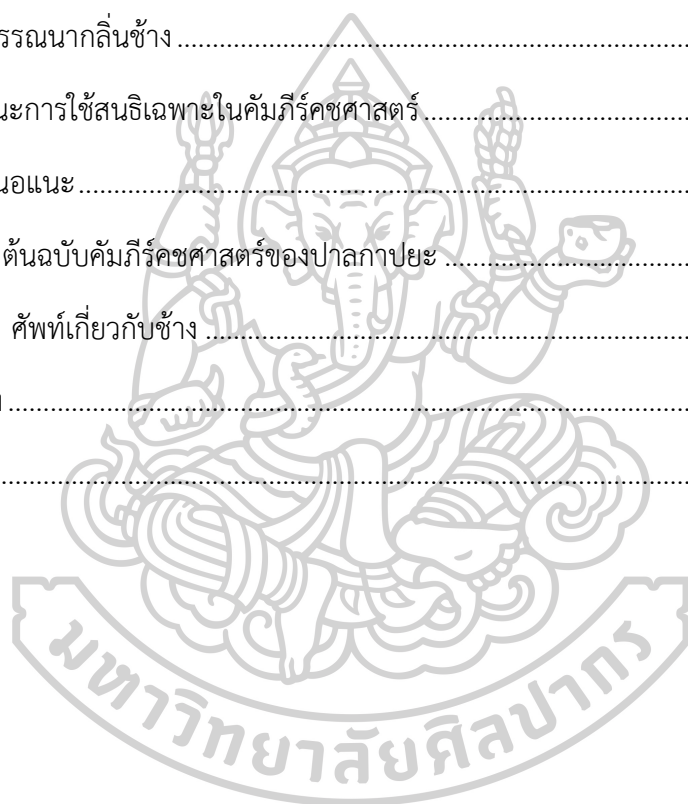 รรณนากลิ่นช้าง ................................................................................
นะการใช้สนธิเฉพาะในคัมภีร์คชศาสตร์ ..........................................
นอแนะ ................................................................................
ต้นฉบับคัมภีร์คชศาสตร์ของปาลกาปยะ ........................................
ศัพท์เกี่ยวกับช้าง ................................................................................
................................................................................
................................................................................
มหาวิทยาลัยศิลปากร